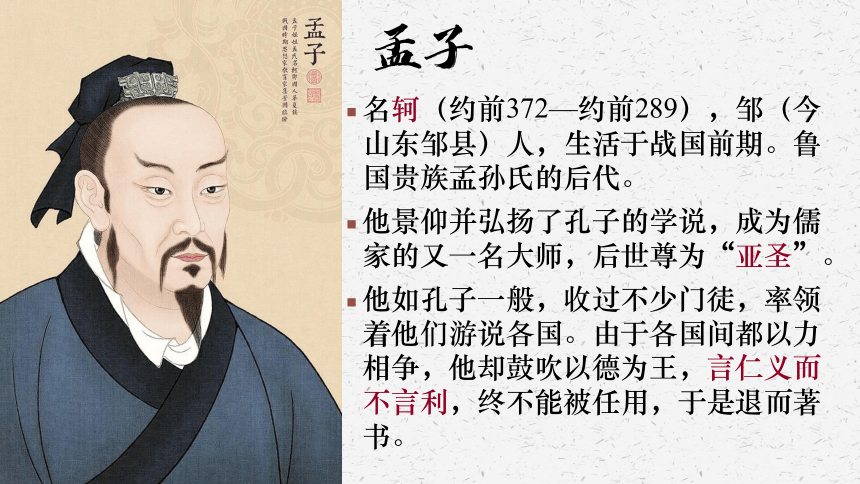 孟子
孟子
名轲（约前372—约前289），邹（今
山东邹县）人，生活于战国前期。鲁
国贵族孟孙氏的后代。
他景仰并弘扬了孔子的学说，成为儒
家的又一名大师，后世尊为“亚圣”。
他如孔子一般，收过不少门徒，率领
着他们游说各国。由于各国间都以力
相争，他却鼓吹以德为王，言仁义而
不言利，终不能被任用，于是退而著
书。